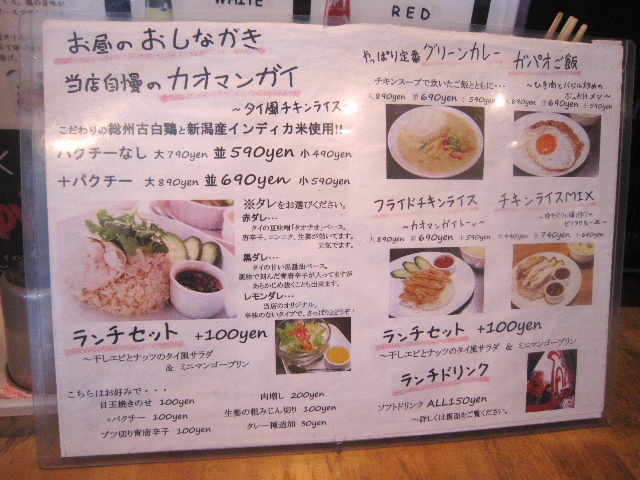 WHITE
RED
お昼のおしながき
当店自慢のカオマンガイ
～タイ風チキンライス
こだわりの総州古白鶏と新潟産インディカ米使用!!
パクチーなし 大790yen 並590yen 小490yen
+パクチー 大890yen 並690yen 小590yen
※タレをお選びください。
赤ダレ…
タイの豆味噌「タオチオ」ベース。
唐辛子、ニンニク、生姜が効いてます。
元気です。
黒ダレ…
タイの甘い黒醤油ベース。
薬味で刻んだ青唐辛子が入っておすが
あらかじめ抜くことも出来ます。
レモンダレ…
当店のオリジナル。
辛味のないタイプで、さっぱりとどうぞ!
ランチセット +100yen
～干しエビとナッツのタイ風サラダ
& ミニマンゴープリン
こちらはお好みで・・・
目玉焼きのせ 100yen
+パクチー 100yen
ブツ切り青唐辛子 100yen
肉増し 200yen
生姜の粗みじん切り 100yen
タレ一種追加 50yen
やっぱり定番グリーンカレー
チキンスープで炊いたご飯とともに…
大890yen 並690yen 小590yen
ガパオご飯
～ひき肉とバジル炒めの
ぶっかけメシ～
大890yen 並690yen 小590yen
フライドチキンライス
～カオマンガイトーッ～
大890yen 並690yen 小590yen
チキンライスMIX
大940yen 並740yen 小640yen
ランチセット +100yen
～干しエビとナッツのタイ風サラダ & ミニマンゴープリン
ランチドリンク
ソフトドリンク ALL150yen
～詳しくは裏面をご覧ください。